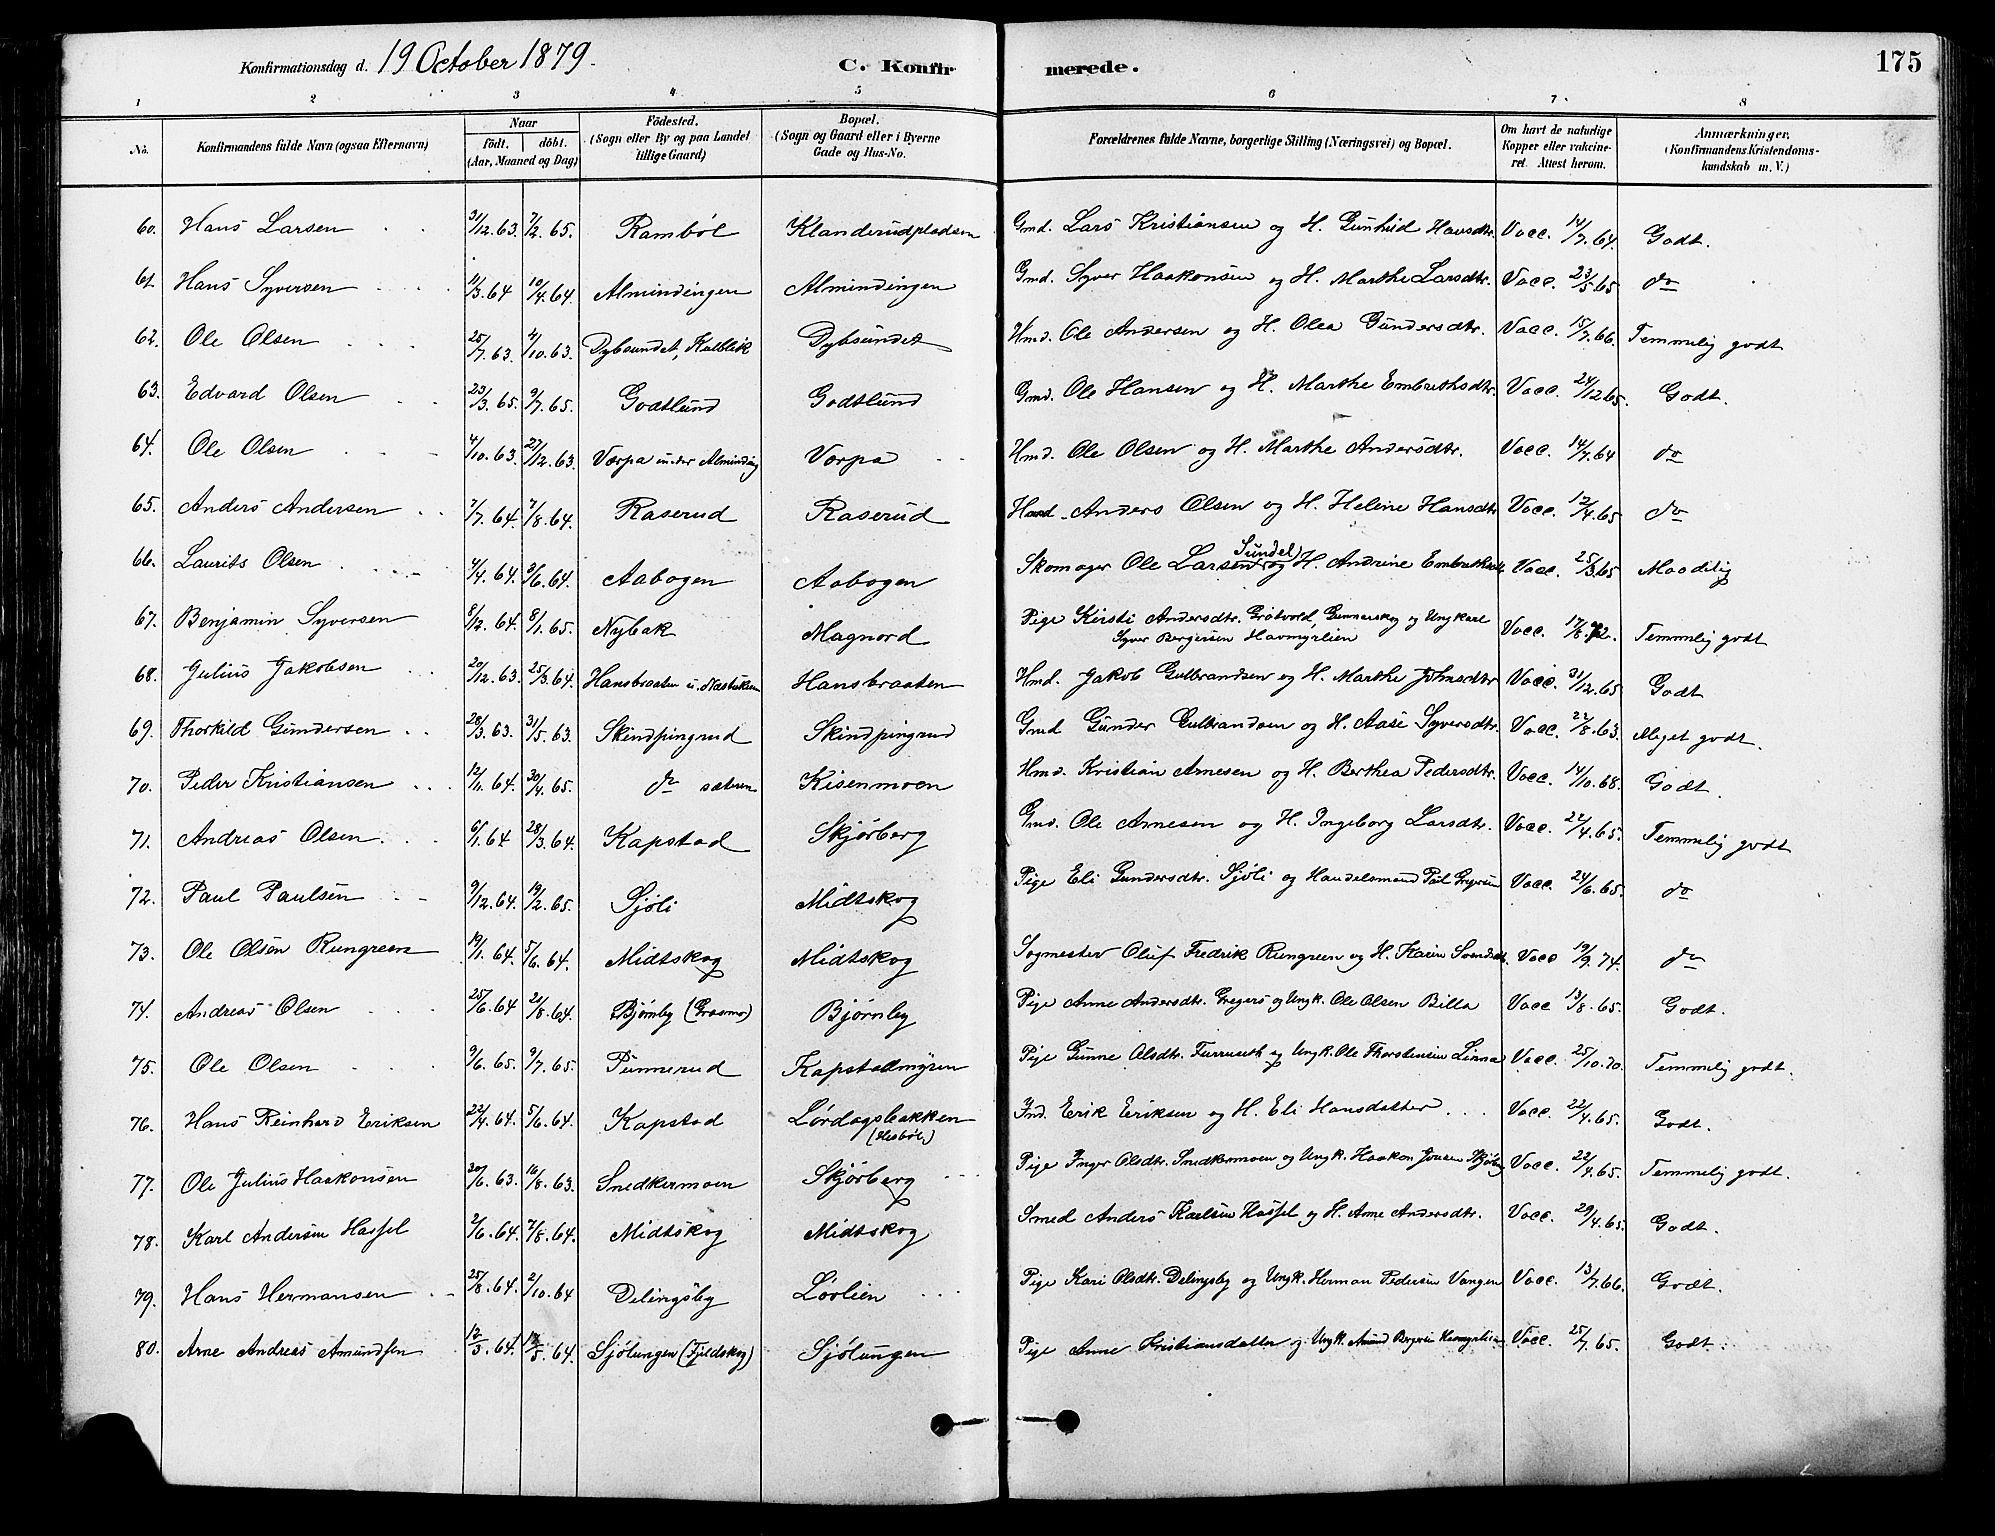 Konfirmationsdag d. 19 October 1879. C. Konfirmerede. 175
1 2 3 4 5 6 7 8
No. Konfirmandens fulde Navn (ogsaa Efternavn) Naar födt. döbt. (Aar, Maaned og Dag) Födested. (Sogn eller By og paa Landet tillige Gaard) Bopæl. (Sogn og Gaard eller i Byerne Gade og Hus-No. Forældrenes fulde Navne, borgerlige Stilling (Næringsvei) og Bopæl. Om havt de naturlige Kopper eller vakcineret. Attest herom. Anmærkninger, (Konfirmandens Kristendomskundskab m. V.)
60. Hans Larsen 31/12.63. 7/2.65. Rambøl Klanderudpladsen Gmd. Lars Kristiansen og H. Gunhild Hansdtr. Vacc. 14/7.64. Godt.
61. Hans Syversen 11/3.64 10/4.64. Almindingen Almindingen Gmd. Syver Haakonsen og H. Marthe Larsdtr. Vacc. 23/5.65 do
62. Ole Olsen 25/7.63. 4/10.63. Dybsundet, Kulblik Dybsundet Hmd. Ole Andersen og H. Olea Gundersdtr. Vacc. 15/7.66. Temmelig godt
63. Edvard Olsen 23/3.65. 9/7.65. Godtlund Godtlund Gmd. Ole Hansen og H. Marthe Embrethsdtr. Vacc. 24/12.65. Godt.
64. Ole Olsen 4/10.63. 27/12.63. Vorpa under Alminding Vorpa Hmd. Ole Olsen og H. Marthe Andersdtr. Vacc. 14/7.64 do
65. Anders Andersen 7/7.64. 7/8.64. Raserud Raserud Hmd. Anders Olsen og H. Helene Hansdtr Vacc. 12/4.65 do
66. Laurits Olsen 4/4.64. 9/6.64. Aabogen Aabogen Skomager Ole Larsen (Sundel) og H. Andrine Vacc. 25/3.65 Maadelig
67. Benjamin Syversen 8/12.64. 8/1.65. Nybak Magnord Pige Kirsti Andersdtr. Grøtvold, Gunnarskog og Ungkarl
Syver Bergersen Havmyrlien Vacc. 17/8.72. Temmelig godt
68. Julius Jakobsen 20/12.63. 25/3.64. Hansbraaten Hansbraaten Hmd. Jakob Gulbrandsen og H. Marthe Johnsdtr Vacc. 31/12.65 Godt
69. Thorkild Gundersen 28/3.63. 31/5.63. Skindpingrud Skindpingrud Gmd Gunder Gulbrandsen og H. Aase Syversdtr. Vacc. 22/8.63. Meget godt.
70. Peder Kristiansen 12/11.64. 30/4.65. do sæteren Kisenmoen Hmd. Kristian Arnesen og H. Berthea Pedersdtr. Vacc. 14/10.68. Godt.
71. Andreas Olsen 6/1.64 28/3.64. Kapstad Skjørberg Gmd. Ole Arnesen og H. Ingeborg Larsdtr. Vacc. 22/4.65. Temmelig godt
72. Paul Paulsen 9/12.64. 19/2.65. Sjøli Midtskog Pige Eli Gundersdtr. Sjøli og Handelsmand Vacc. 24/6.65. do
73. Ole Olsen Rungreen 19/1.64. 5/6.64. Midtskog Midtskog Sagmester Oluf Fredrik Rungreen og H. Karin Vacc 19/9.74. do
74. Andreas Olsen 25/6.64 21/8.64. Bjørnby (Grasmo) Bjørnby Pige Anne Andersdtr. Gregers og Ungk. Ole Olsen Billa Vacc 13/8.65. Godt.
75. Ole Olsen 9/6.65. 9/7.65. Punnerud Kapstadmyren Pige Gunne Olsdtr. Furuseth og Ungk. Ole Thorstensen Linna Vacc. 25/10.70. Temmelig godt.
76. Hans Reinhard Eriksen 22/4.64. 5/6.64. Kapstad Lørdagsbakken
(Hesbøl) Ind. Erik Eriksen og H. Eli Hansdatter Vacc. 22/4.65. Godt.
77. Ole Julius Haakonsen 20/6.63. 16/8.63. Snedkermoen Skjørberg Pige Inger Olsdtr. Snedkermoen og Ungk. Haakon Vacc. 22/4.65. Temmelig godt.
78. Karl Andersen Hassel 2/6.64. 7/8.64. Midtskog Midtskog Smed Anders Karlsen Hassel og H. Anne Andersdtr. Vacc. 29/4.65. Godt.
79. Hans Hermansen 25/8.64. 2/10.64 Delingsby Løvlien Pige Kari Olsdtr. Delingsby og Ungk. Herman Pedersen Vangen Vacc. 13/7.66. Godt.
80. Arne Andreas Amundsen 12/3.64. 64. Sjølungen (Fjeldskog) Sjølungen Pige Anne Kristiansdatter og Ungk. Amund Vacc. 25/7.65. Godt.